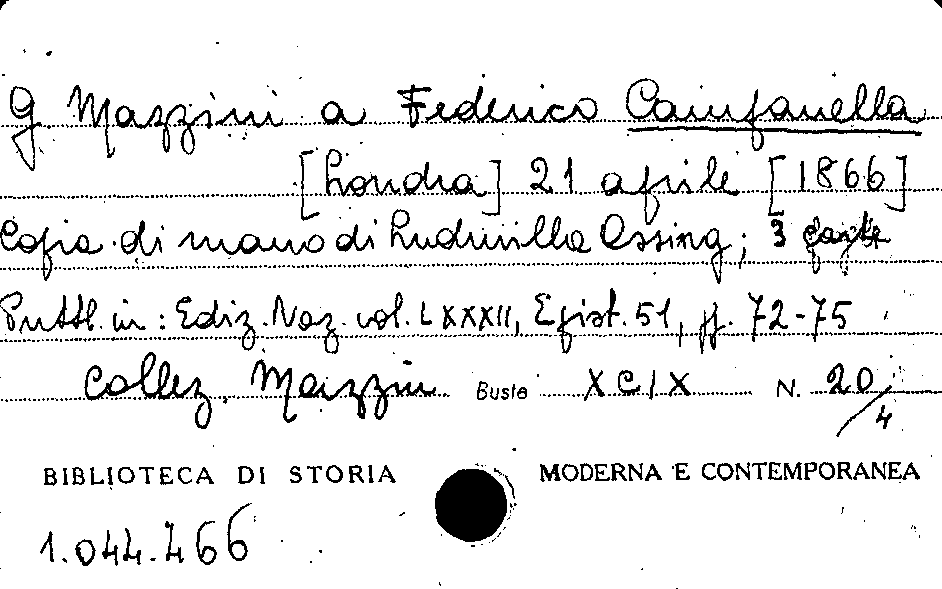 G. Mazzini a Federico Campanella
[Londra] 21 aprile [1866]
Copia di mano di Ludmilla Assing; 3 carte
Pubbl. in: Ediz. Naz. vol. LXXXII, Epist. 51, pp. 72-75
Collez. Mazzini Busta XCIX N. 20/4
BIBLIOTECA DI STORIA MODERNA E CONTEMPORANEA
1.044.466